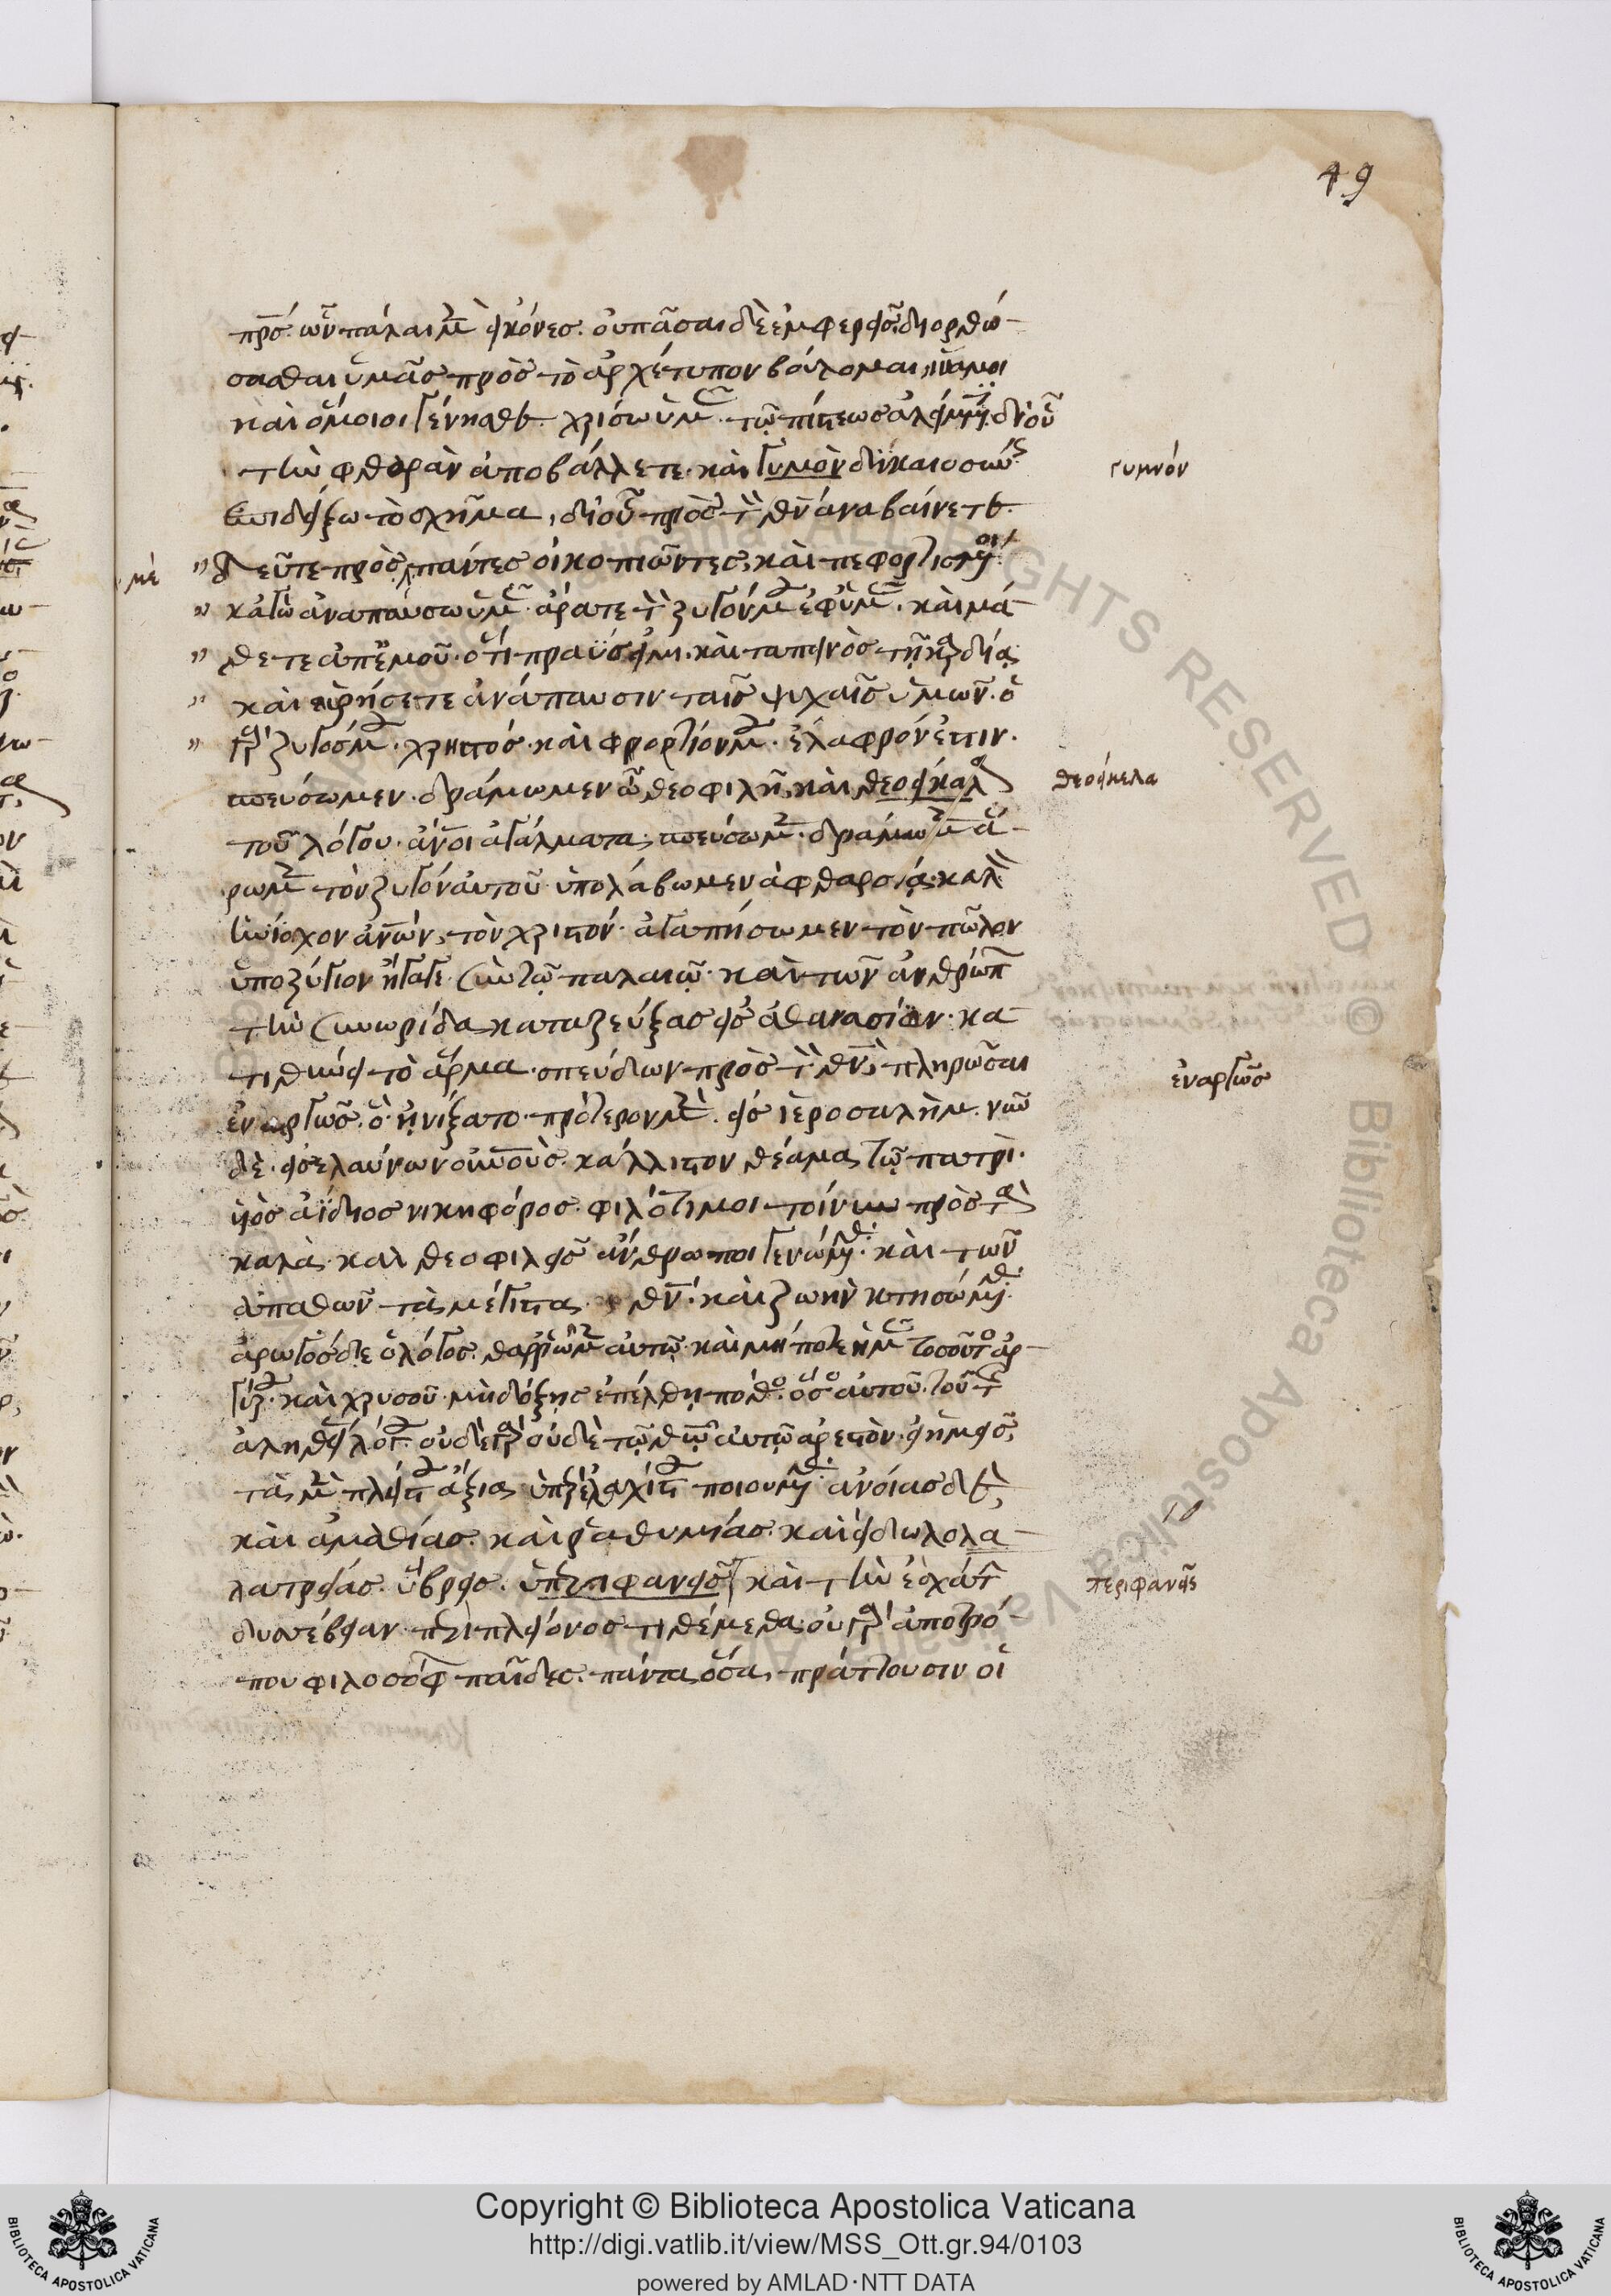 49
πρς. ὧν πάλαι μὲν εἰκόνες. οὐ πᾶσαι δὲ ἐμφερεῖς. διορθώ-
σασθαι ὑμᾶς πρὸς τὸ ἀρχέτυπον βούλομαι, ἵνά μοι
καὶ ὅμοιοι γένησθε. χρίσω ὑμᾶς τῷ πίστεως ἀλείμματι. δι' οὗ
τὴν φθορὰν ἀποβάλλετε. καὶ γυμὸν δικαιοσύνης
ἐπιδείξω τὸ σχῆμα, δι' οὗ πρὸς τὸν θν ἀναβαίνετε.
γυμνόν
" Δεῦτε πρὸς πάντες οἱ κοπιῶντες, καὶ πεφορτισμένοι
μὲ
" κἀγὼ ἀναπαύσω ὑμᾶς. ἄρατε τὸν ζυγόν μου ἐφ' ὑμᾶς. καὶ μά-
" θετε ἀπ' ἐμοῦ. ὅτι πραΰς εἰμι. καὶ ταπεινὸς τῇ καρδίᾳ
" καὶ εὑρήσετε ἀνάπαυσιν ταῖς ψυχαῖς ὑμῶν. ὁ
" γὰρ ζυγός μου. χρηστός. καὶ φορτίον μου. ἐλαφρόν ἐστιν.
σπεύσωμεν. δράμωμεν ὦ θεοφιλῆ καὶ θεοείκαλα
θεοείκελα
τοῦ λόγου. ἄνοι ἀγάλματα. σπεύσωμεν. δράμωμεν ἄ-
ρωμεν τὸν ζυγὸν αὐτοῦ ὑπολάβωμεν ἀφθαρσίᾳ. καλὸν
ἡνίοχον ἀνων, τὸν χριστόν. ἀγαπήσωμεν. τὸν πῶλον
ὑποζύγιον ἤγαγε σὺν τῷ παλαιῷ. καὶ τῶν ἀνθρώπων
τὴν συνωρίδα καταζεύξας εἰς ἀθανασίαν. κα-
τιθύνει τὸ ἅρμα. σπεύδων πρὸς τὸν θν, πληρῶσαι
ἐναργῶς. ὃ ᾐνίξατο. πρότερον μὲν. εἰς ἱεροσαλὴμ. νῦν
ἐναργῶς
δὲ. εἰσελαύνων οὐνοὺς. κάλλιστον θέαμα τῷ πατρὶ.
υἱὸς ἀΐδιος νικηφόρος. φιλότιμοι τοίνυν πρὸς τὰ
καλὰ. καὶ θεοφιλεῖς ἄνθρωποι γενώμεθα. καὶ τῶν
ἀπαθῶν τὰ μέγιστα. θν. καὶ ζωὴν κτησώμεθα.
ἀρωγὸς δὲ ὁ λόγος. θαρρῶμεν αὐτῷ. καὶ μήποτε ἡμᾶς τοσοῦτος ἀρ-
γύρου. καὶ χρυσοῦ. μὴ δόξης ἐπέλθῃ πόθος. ὅσος αὐτοῦ. τοῦ τῆς
ἀληθείας λόγου. οὐδὲ γὰρ οὐδὲ τῷ θῷ αὐτῷ ἀρεστὸν. εἰ ἡμεῖς,
τὰ μὲν πλείστου ἄξια, περὶ ἐλαχίστου ποιούμεθα. ἀνοίας δὲ,
καὶ ἀμαθίας. καὶ ῥαθυμίας. καὶ εἰδωλολα-
λατρείας. ὕβρεις. ὑπερηφανεῖς καὶ τὴν ἐσχάτην
περιφανεῖς
δυσσέβειαν. περὶ πλείονος τιθέμεθα. οὐ γὰρ ἀποτρό-
που φιλοσόφων παῖδες. πάντα ὅσα, πράττουσιν οἱ
Copyright © Biblioteca Apostolica Vaticana
http://digi.vatlib.it/view/MSS_Ott.gr.94/0103
powered by AMLAD·NTT DATA